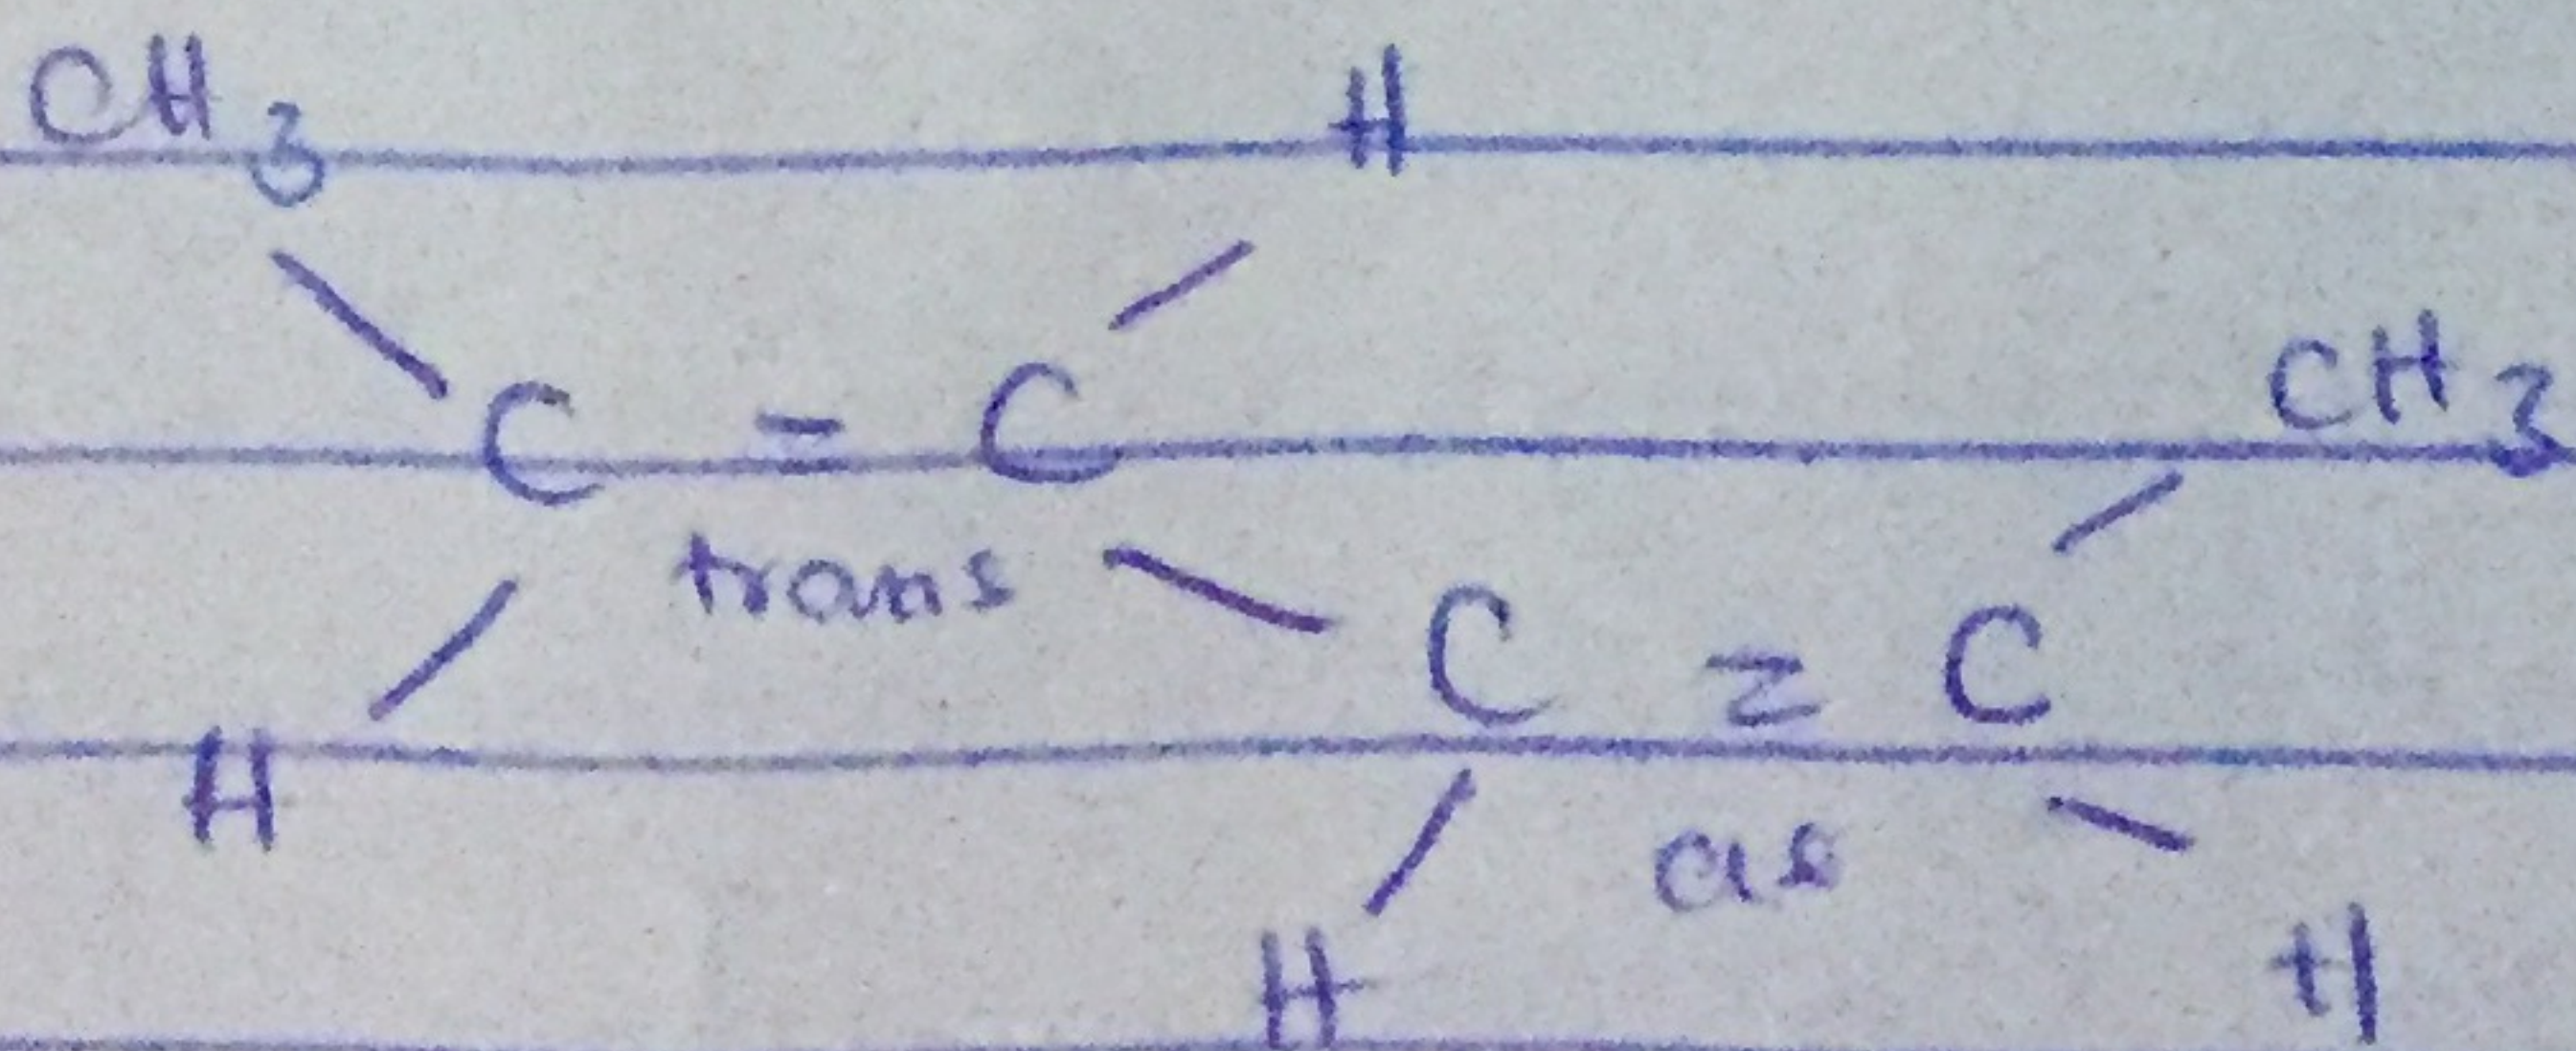 CH3 H
C = C CH3
trans C = C
H cis
H H